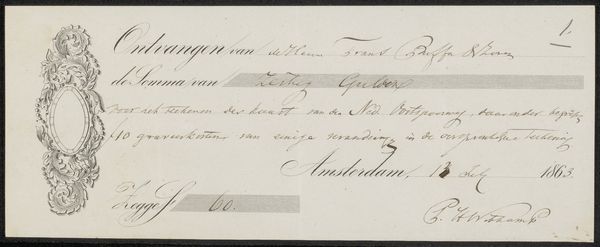 1.
Ontvangen van de Heeren Frans Buffa & Zonen
de Somma van Zestig Gulden
voor het teekenen der kaart van den Ned. Oostspoorweg, daaronder
f 10 graveerkosten van eenige verandering in de oorspronkelijke teekening
Amsterdam, 13 July 1863
Zegge ƒ 60.
P. H. Witkamp